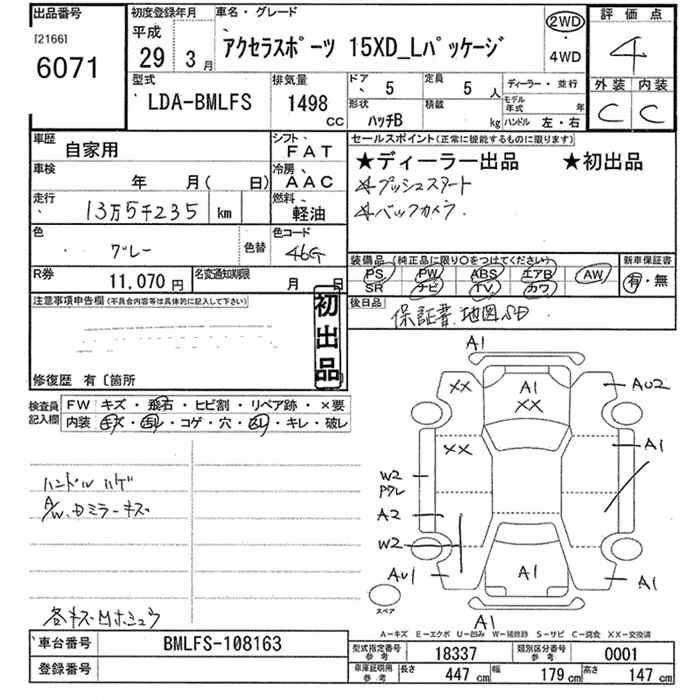 出品番号 初度登録年月 車名・グレード 評価点
[2166] 平成
6071 29 3月 アクセラスポーツ 15XD_Lパッケージ 2WD ・ 4WD 4
型式 排気量 ドア 定員 ディーラー・並行 外装 内装
LDA-BMLFS 1498 cc 5 5人 モデル年式 年 C C
形状 ハッチB 積載 kg ハンドル 左・右
車歴 自家用 シフト FAT セールスポイント(正常に機能するものに限ります)
車検 年 月( 日) 冷房 AAC ★ディーラー出品 ★初出品
走行 13万5千235 km 燃料 軽油 4プッシュスタート
4バックカメラ
色 グレー 色替 色コード 46G
装備品(純正品に限り○をつけてください) 新車保証書
PS PW ABS エアB AW 有・無
SR ナビ TV カワ
R券 11,070円 名変通知期限 月 日
後日品 保証書、地図SD
注意事項申告欄(不具合内容等は具体的に記入して下さい)
初出品
修復歴 有〔箇所
検査員記入欄 FW キズ・飛石・ヒビ割・リペア跡・×要
内装 キズ・汚レ・コゲ・穴・凹リ・キレ・破レ
ハンドルハゲ
A/W、Dミラーキズ
各キズ凹ホシュウ
A1
XX A1 AU2
XX
XX A1
W2
PクレA2
W2
AU1 A1 A1
スペア A1
A-キズ E-エクボ U-凹み W-補修跡 S-サビ C-腐食 XX-交換済
車台番号 BMLFS-108163 型式指定番号 参考 18337 類別区分番号 参考 0001
登録番号 車庫証明用 参考 長さ 447cm 幅 179cm 高さ 147cm